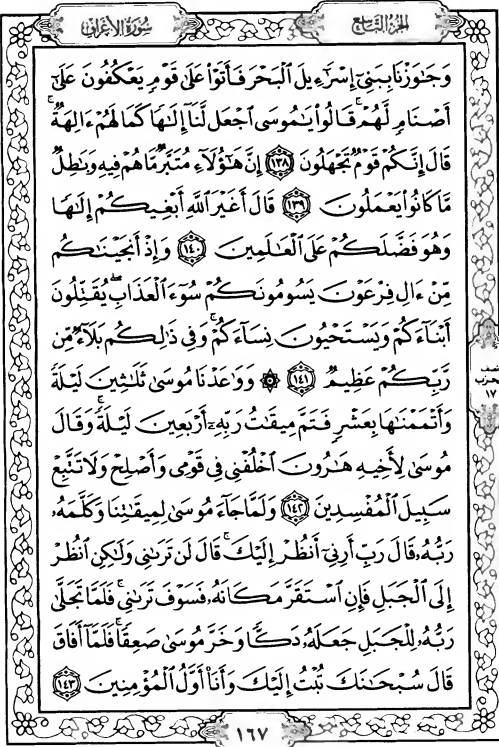 الجزء التاسع سورة الأعراف
وَجَٰوَزْنَا بِبَنِىٓ إِسْرَٰٓءِيلَ ٱلْبَحْرَ فَأَتَوْا۟ عَلَىٰ قَوْمٍ يَعْكُفُونَ عَلَىٰٓ
أَصْنَامٍ لَّهُمْ ۚ قَالُوا۟ يَٰمُوسَى ٱجْعَل لَّنَآ إِلَٰهًا كَمَا لَهُمْ ءَالِهَةٌ ۚ
قَالَ إِنَّكُمْ قَوْمٌ تَجْهَلُونَ ١٣٨ إِنَّ هَٰٓؤُلَآءِ مُتَبَّرٌ مَّا هُمْ فِيهِ وَبَٰطِلٌ
مَّا كَانُوا۟ يَعْمَلُونَ ١٣٩ قَالَ أَغَيْرَ ٱللَّهِ أَبْغِيكُمْ إِلَٰهًا
وَهُوَ فَضَّلَكُمْ عَلَى ٱلْعَٰلَمِينَ ١٤٠ وَإِذْ أَنجَيْنَٰكُم
مِّنْ ءَالِ فِرْعَوْنَ يَسُومُونَكُمْ سُوٓءَ ٱلْعَذَابِ ۖ يُقَتِّلُونَ
أَبْنَآءَكُمْ وَيَسْتَحْيُونَ نِسَآءَكُمْ ۚ وَفِى ذَٰلِكُم بَلَآءٌ مِّن
رَّبِّكُمْ عَظِيمٌ ١٤١ ۞ وَوَٰعَدْنَا مُوسَىٰ ثَلَٰثِينَ لَيْلَةً
وَأَتْمَمْنَٰهَا بِعَشْرٍ فَتَمَّ مِيقَٰتُ رَبِّهِۦٓ أَرْبَعِينَ لَيْلَةً ۚ وَقَالَ
مُوسَىٰ لِأَخِيهِ هَٰرُونَ ٱخْلُفْنِى فِى قَوْمِى وَأَصْلِحْ وَلَا تَتَّبِعْ
سَبِيلَ ٱلْمُفْسِدِينَ ١٤٢ وَلَمَّا جَآءَ مُوسَىٰ لِمِيقَٰتِنَا وَكَلَّمَهُۥ
رَبُّهُۥ قَالَ رَبِّ أَرِنِىٓ أَنظُرْ إِلَيْكَ ۚ قَالَ لَن تَرَىٰنِى وَلَٰكِنِ ٱنظُرْ
إِلَى ٱلْجَبَلِ فَإِنِ ٱسْتَقَرَّ مَكَانَهُۥ فَسَوْفَ تَرَىٰنِى ۚ فَلَمَّا تَجَلَّىٰ
رَبُّهُۥ لِلْجَبَلِ جَعَلَهُۥ دَكًّا وَخَرَّ مُوسَىٰ صَعِقًا ۚ فَلَمَّآ أَفَاقَ
قَالَ سُبْحَٰنَكَ تُبْتُ إِلَيْكَ وَأَنَا۠ أَوَّلُ ٱلْمُؤْمِنِينَ ١٤٣
نصف
الحزب
١٧
١٦٧